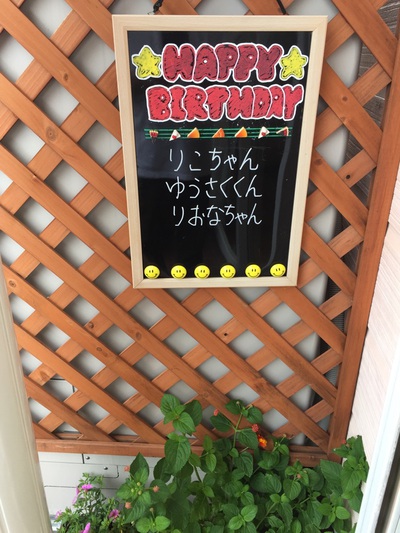 HAPPY
BIRTHDAY
りこちゃん
ゆうさくくん
りおなちゃん